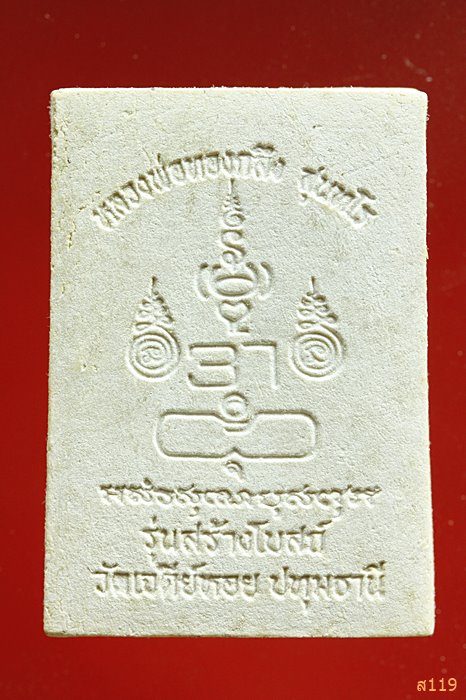 หลวงพ่อทองกลึง สุนทโร
รุ่นสร้างโบสถ์
วัดเจดีย์หอย ปทุมธานี
ส119